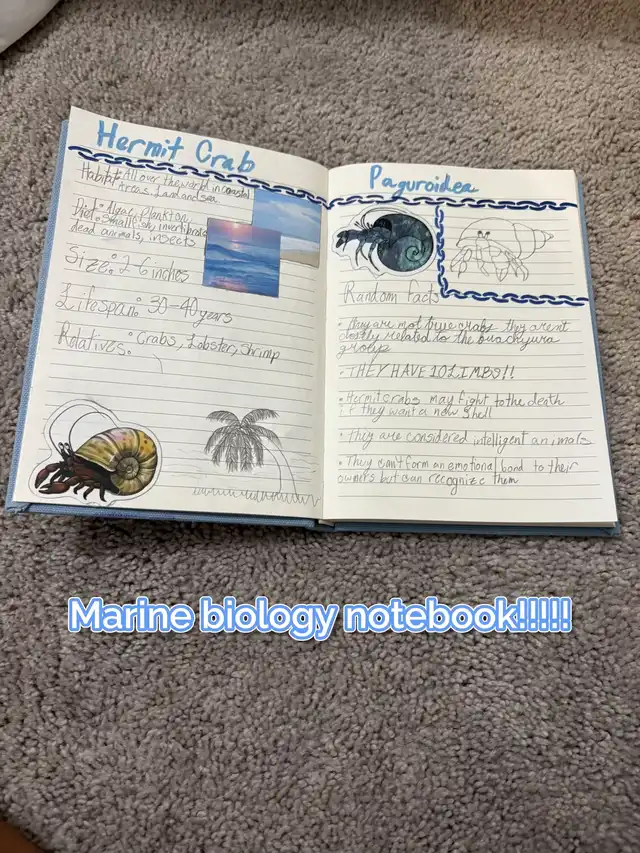 Hermit Crab
Habitat: All over the world in coastal
Areas. Land and sea
Diet: Algae, Plankton,
Diet: Small fish, invertibrate
dead animals, insects
Size: 2-6 inches
Lifespan: 30-40 years
Relatives: Crabs, Lobster, Shrimp
Paguroidea
Random facts
• They are not true crabs they arent
closely related to the brachyura
group
• THEY HAVE 10 LIMBS!!
• Hermit crabs may fight to the death
if they want a new shell
• They are considered intelligent animals
• They can't form an emotional bond to their
owners but can recognize them
Marine biology notebook!!!!!